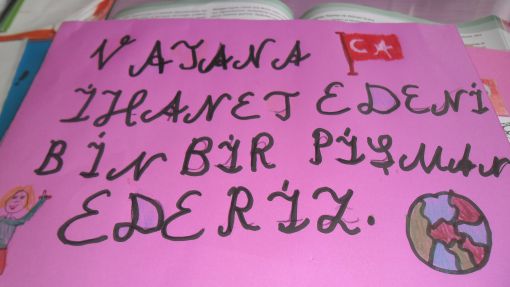 VATANA
İHANET EDENİ
BİN BİR PİŞMAN
EDERİZ.